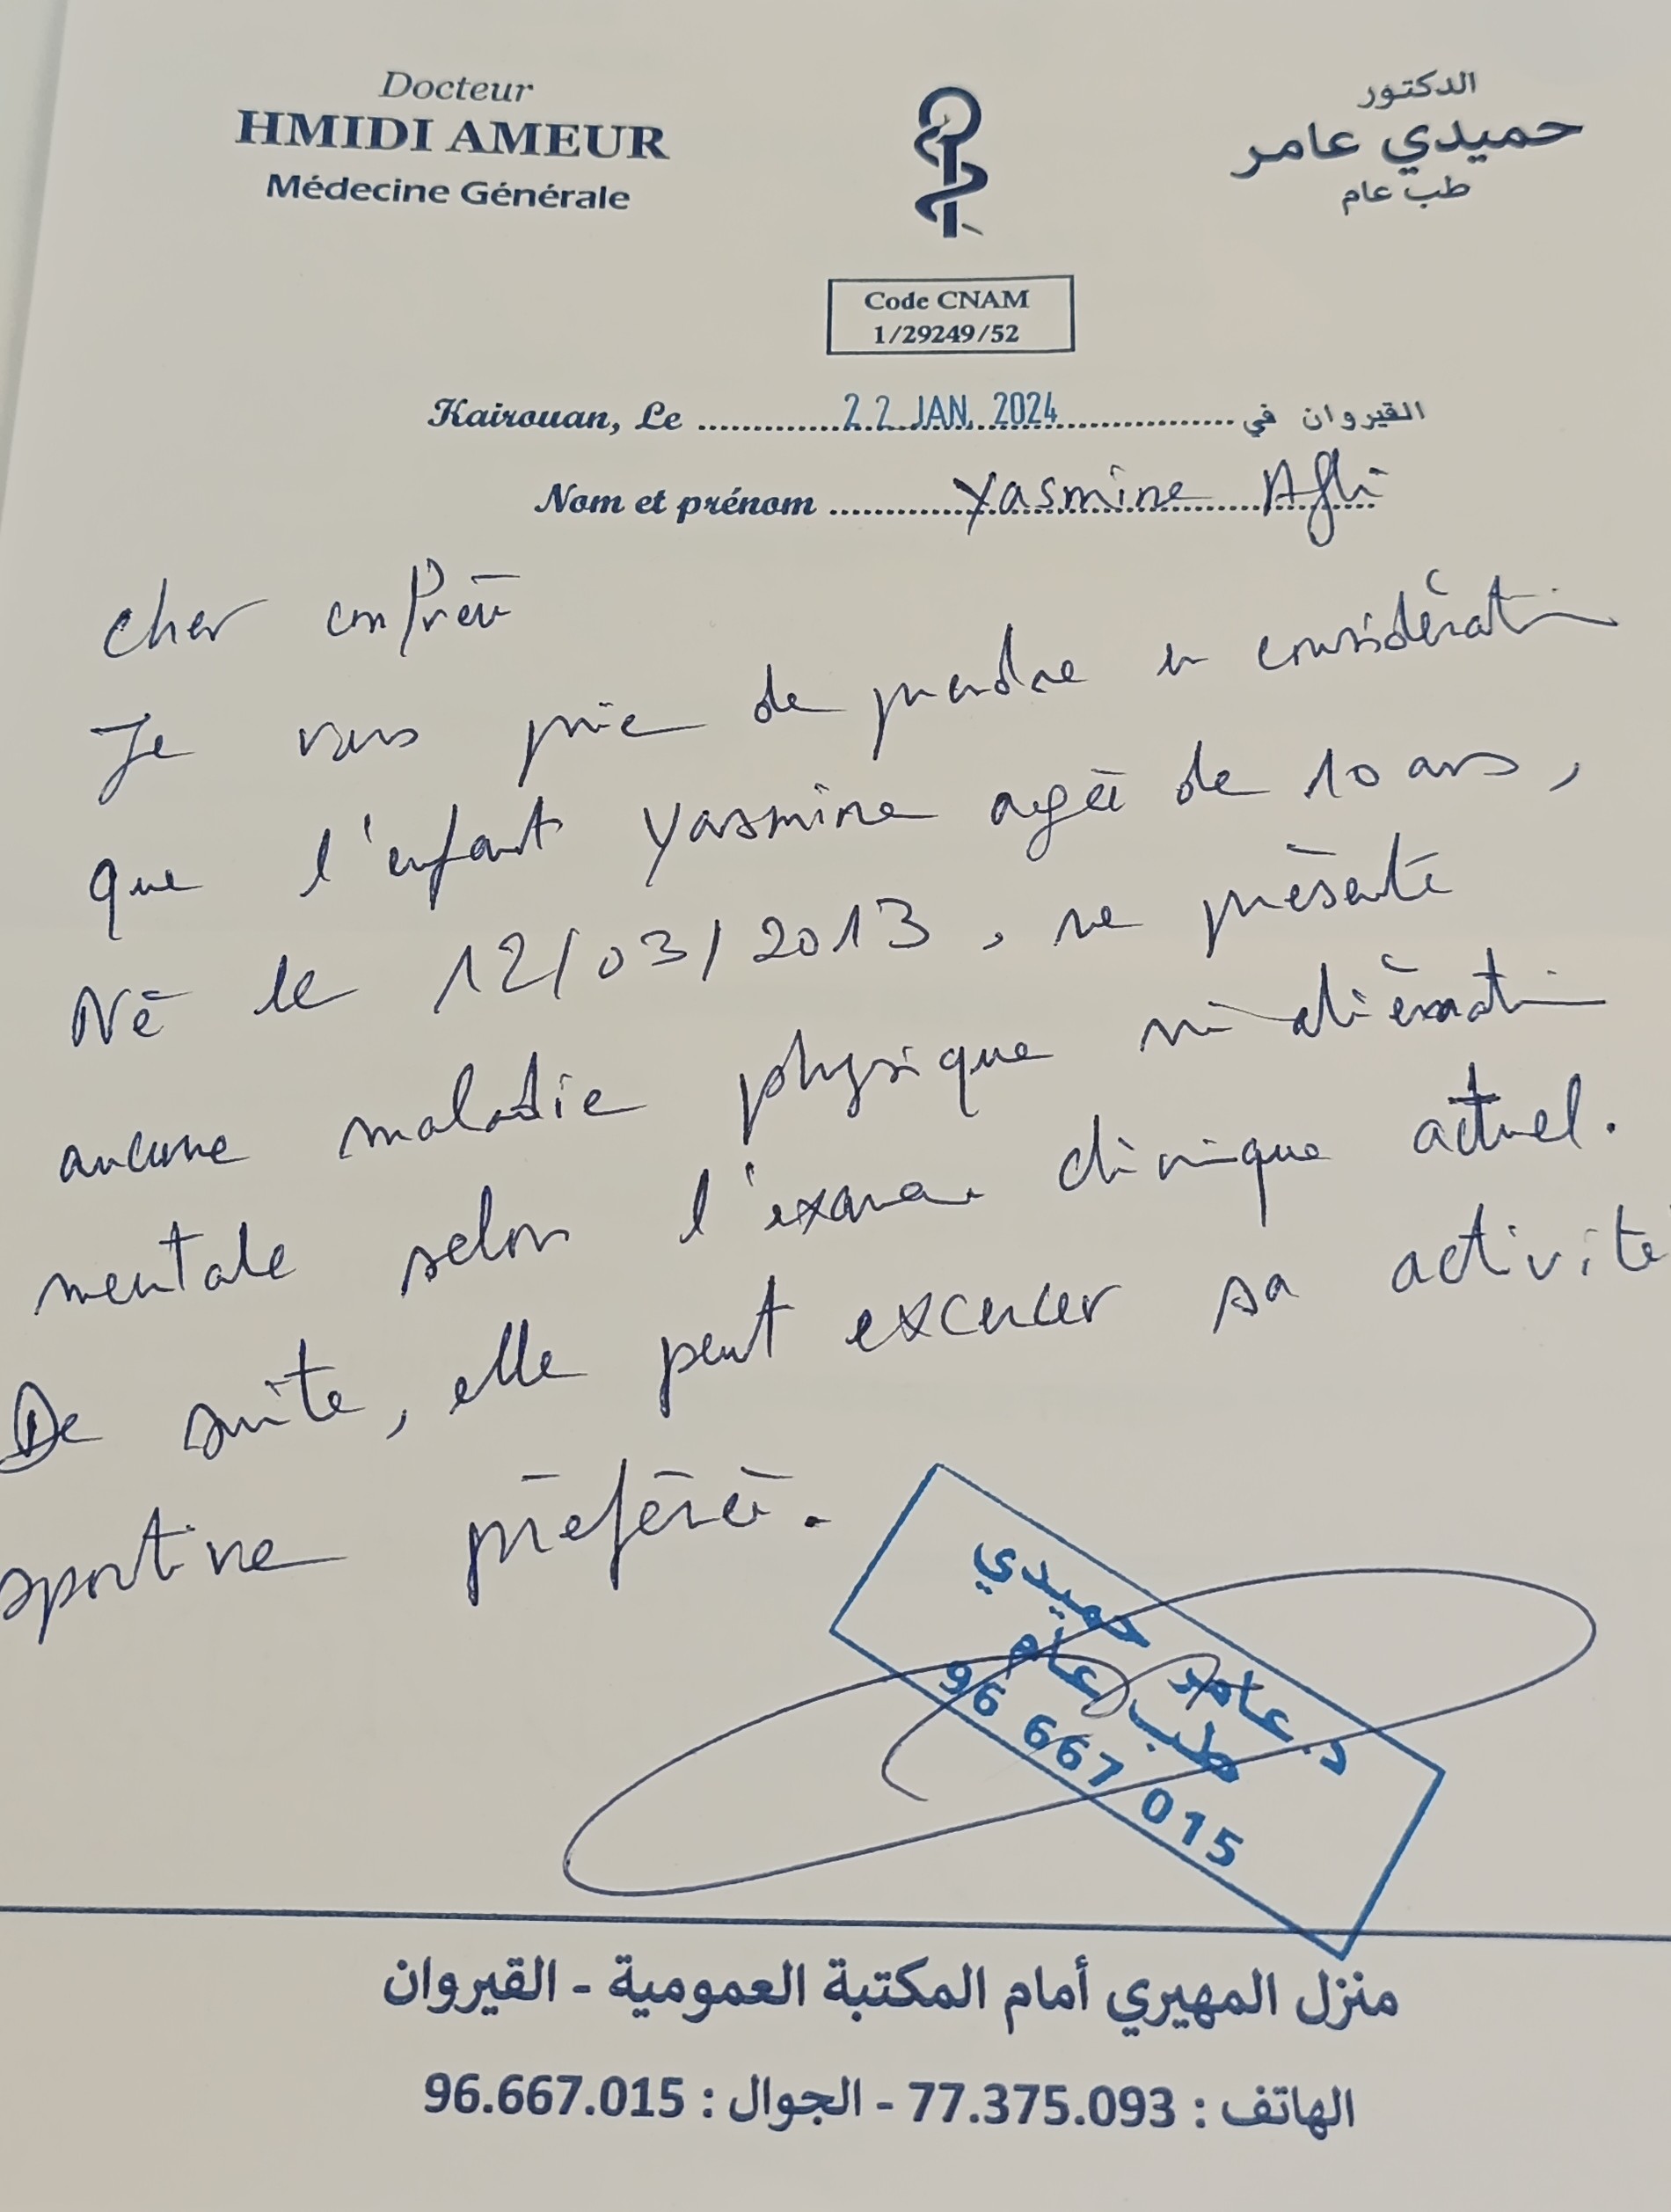 Docteur
HMIDI AMEUR
Médecine Générale
الدكتور
حميدي عامر
طب عام
Code CNAM
1/29249/52
Kairouan, Le 22 JAN. 2024 القيروان في
Nom et prénom Yasmine Afli
cher confrère
Je vous prie de prendre en considération
que l'enfant Yasmine agée de 10 ans,
Né le 12/03/2013, ne présente
aucune maladie physique ni aliénation
mentale selon l'examen clinique actuel.
De suite, elle peut excercer sa activité
sportive préférée.
د. عامر حميدي
طب عام
96 667 015
منزل المهيري أمام المكتبة العمومية - القيروان
الهاتف : 77.375.093 - الجوال : 96.667.015